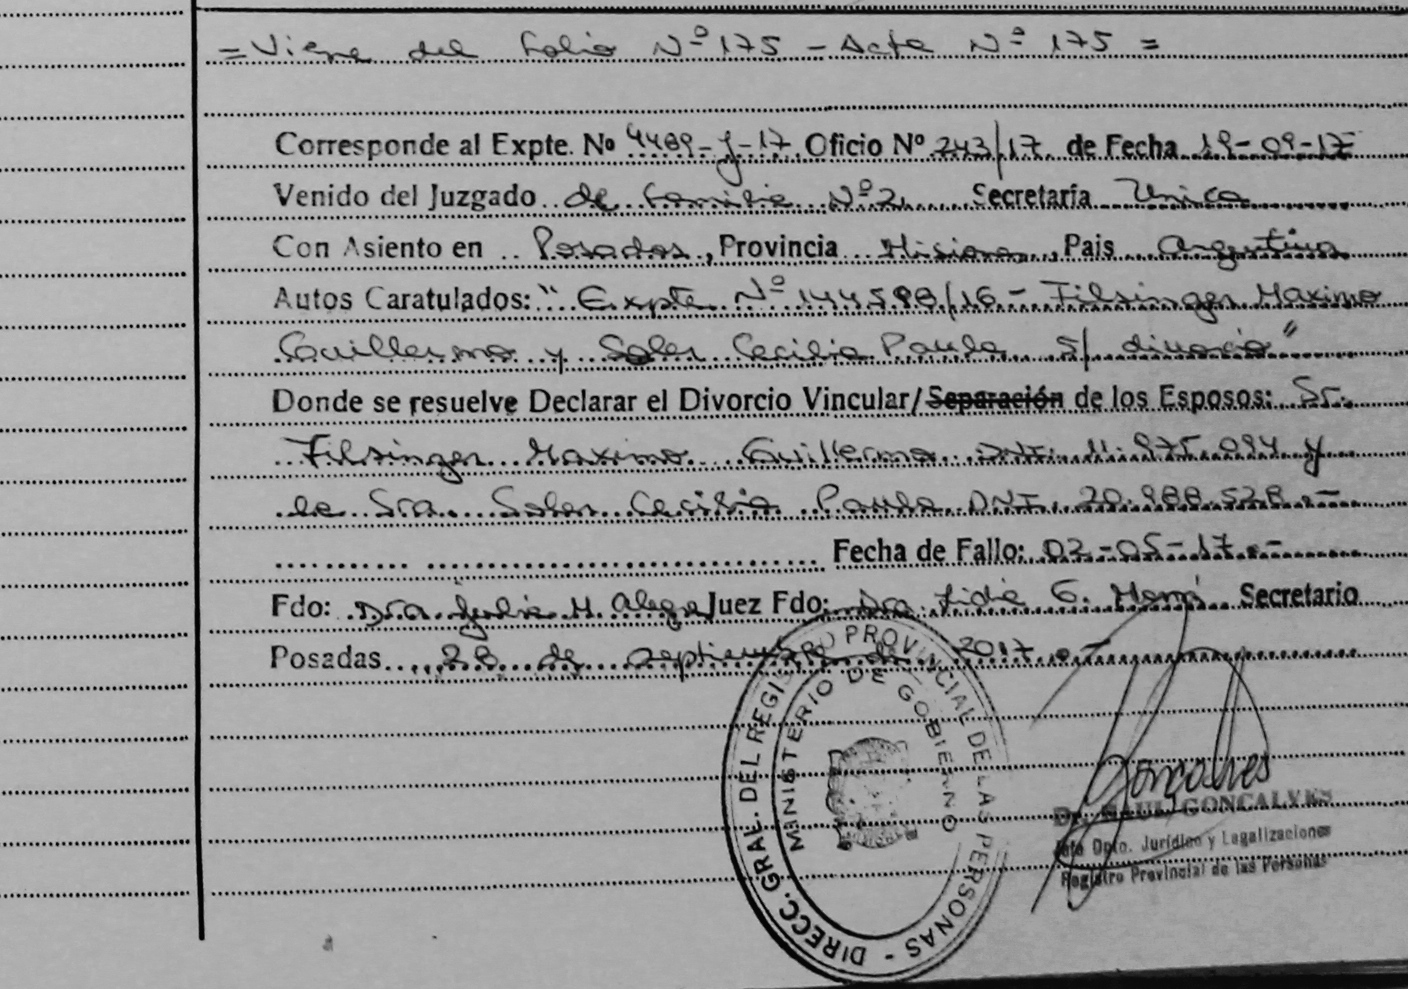 = Viene del Folio Nº 175 - Acta Nº 175 =
Corresponde al Expte. Nº 4489-y-17 Oficio Nº 243/17 de Fecha 19-09-17
Venido del Juzgado de Familia Nº 2 Secretaría Unica
Con Asiento en Posadas, Provincia Misiones, Pais Argentina
Autos Caratulados: " Expte Nº 144598/16 - Filsinger Maximo
Guillermo y Soler Cecilia Paula s/ divorcio"
Donde se resuelve Declarar el Divorcio Vincular/Separación de los Esposos: Sr.
Filsinger Maximo Guillermo DNI. 11.975.094 y
la Sra. Soler Cecilia Paula DNI. 20.988.528.-
Fecha de Fallo: 02-05-17.-
Fdo: Dra Julia H. Alegre Juez Fdo: Dra. Lidia G. Secretario
Posadas, 28 de septiembre de 2017.-
DIRECC. GRAL. DEL REGISTRO PROVINCIAL DE LAS PERSONAS -
MINISTERIO DE GOBIERNO
Goncalves
Dr. RAUL GONCALVES
Jefe Dpto. Jurídico y Legalizaciones
Registro Provincial de las Personas